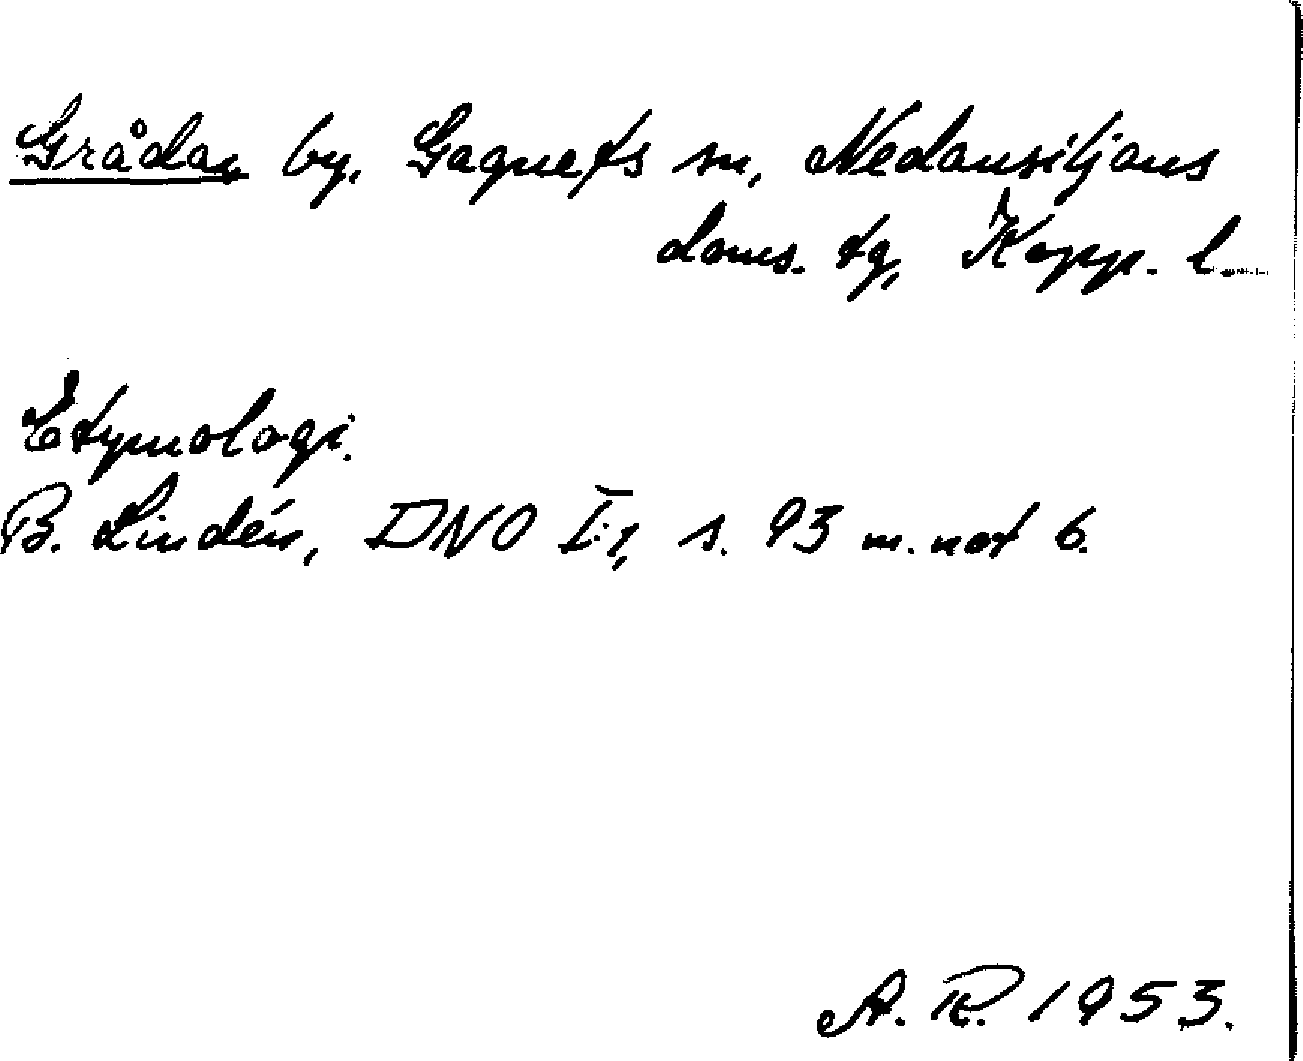 Gråda, by, Gagnefs sn, Nedansiljans
doms. tg, Kopp. l.
Etymologi.
B. Lindén, DNO I:1, s. 93 m. not 6.
A. R. 1953.